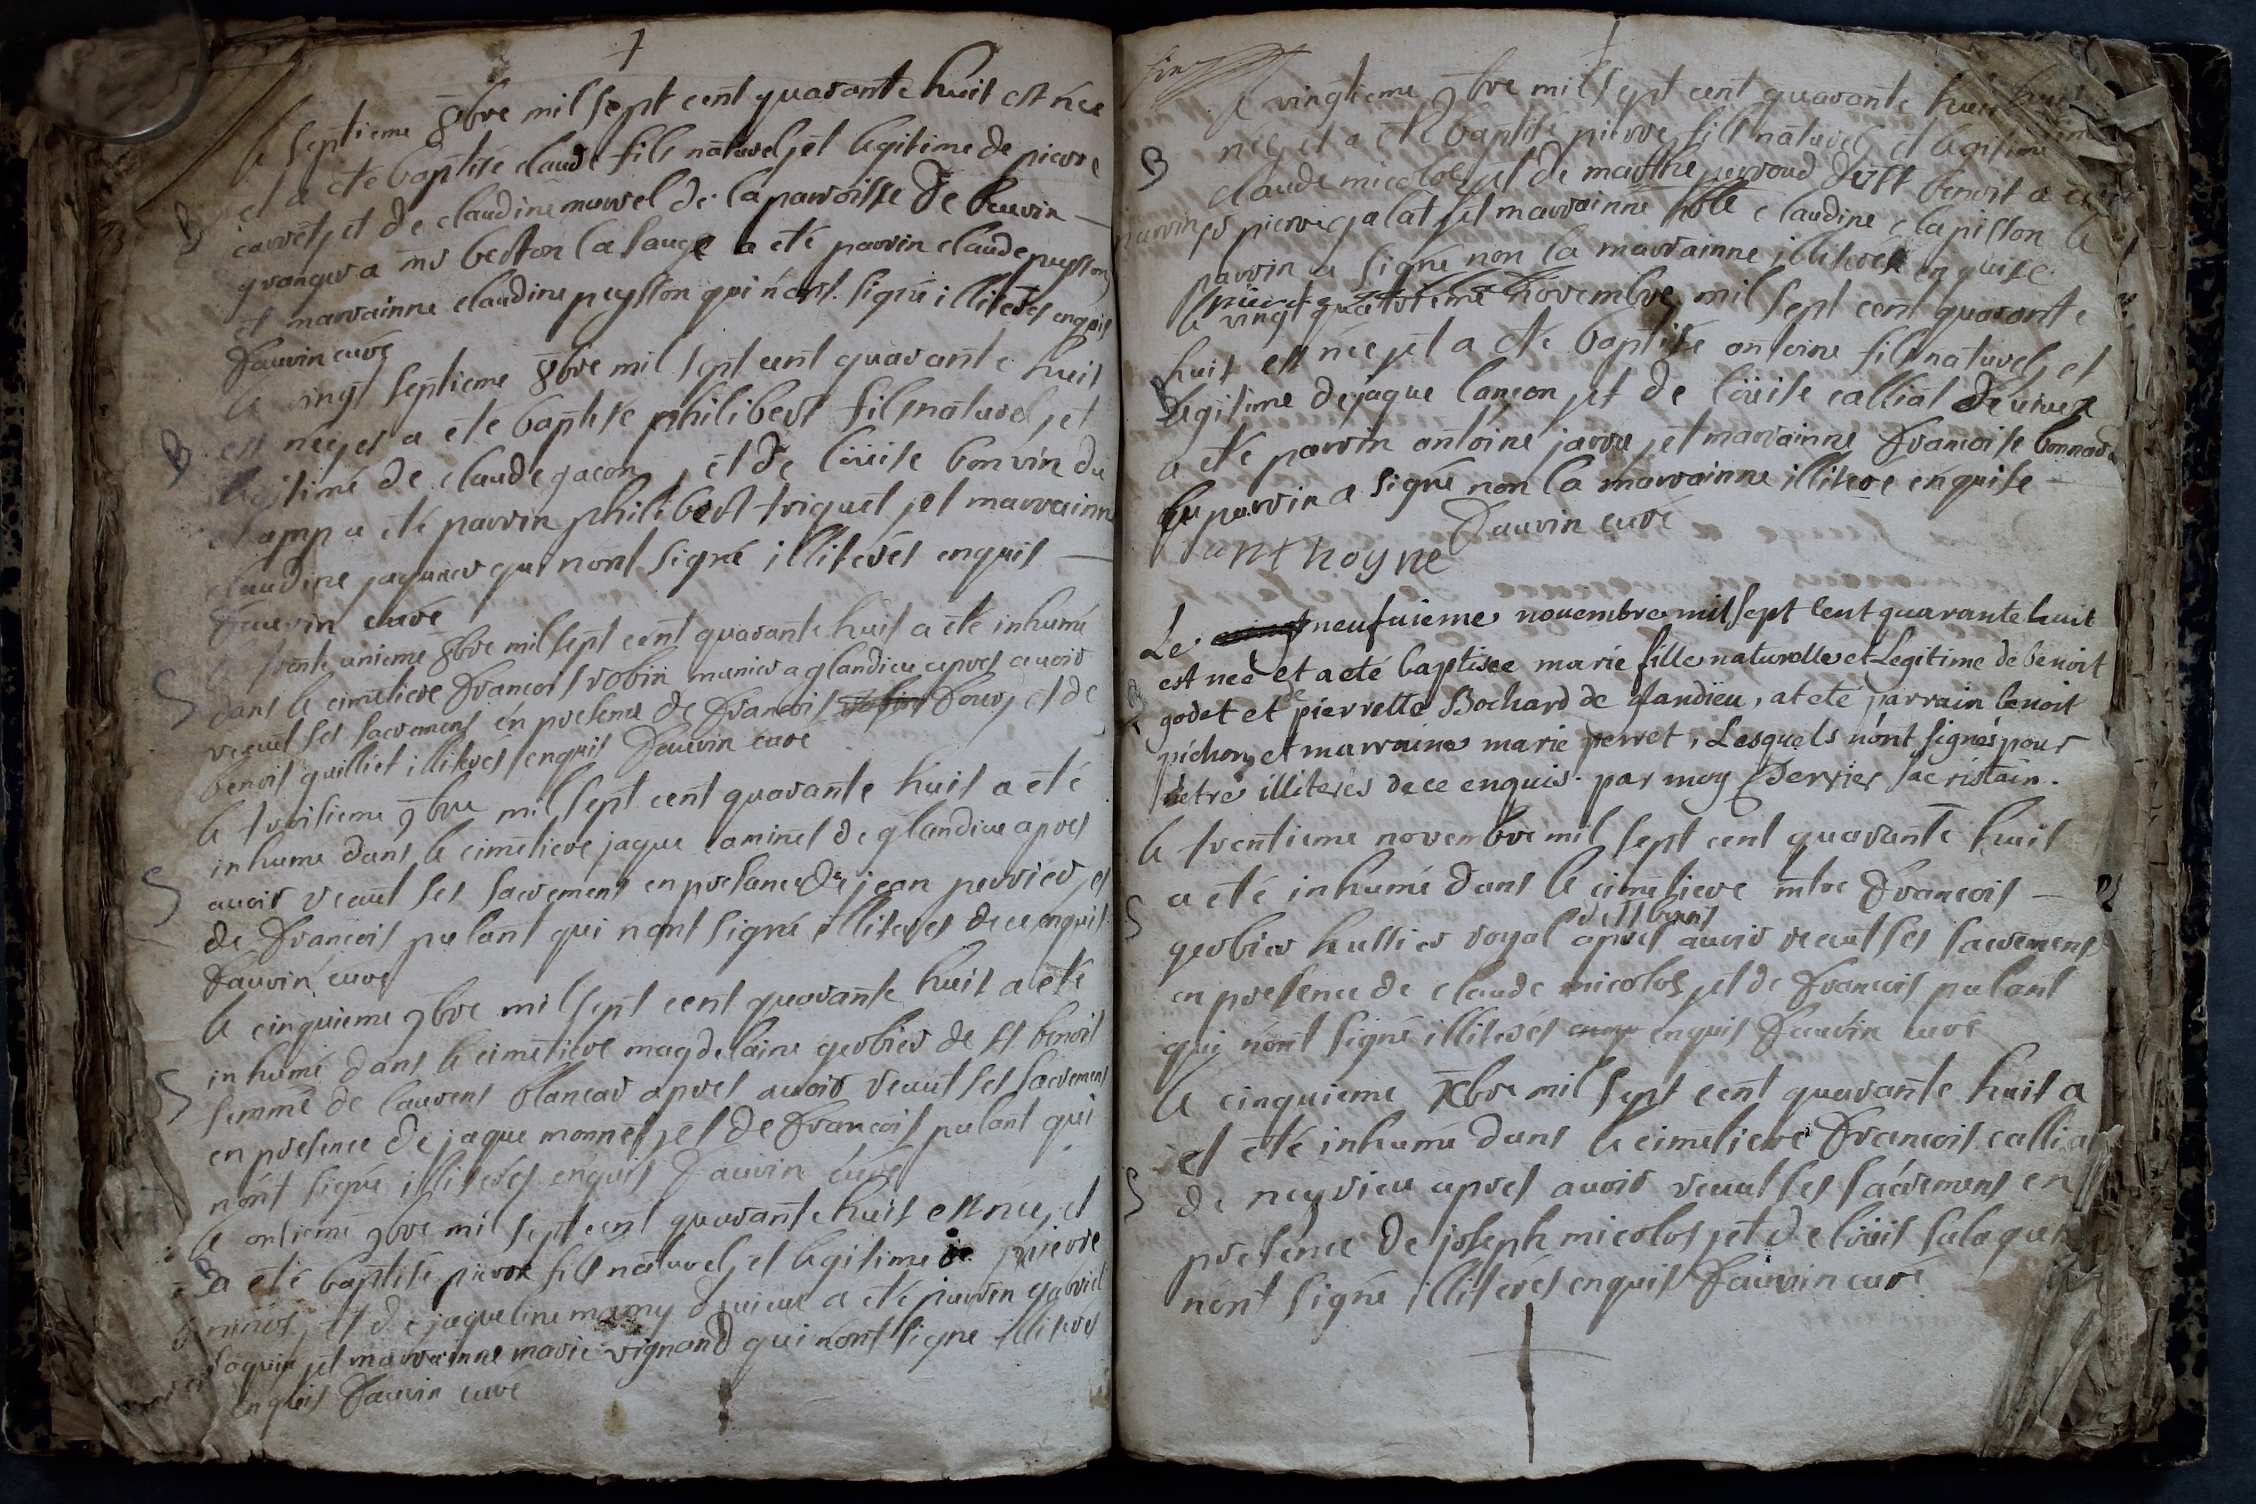 le septieme 8bre mil sept cent quarante huit est née
et a été baptisé claude fils naturel et legitime de pierre
carret, et de claudine murel de la parroisse de beuvin
B
granger a mr beston la sauge a été parrin claude peysson
et marrainne claudine peysson qui n'ont signé illiterés enquis
fauvin curé
le vingt septieme 8bre mil sept cent quarante huit
est née, et a été baptisé philibert fils naturel, et
B
legitime de claude gacon, et de loüise bonvin du
champ a été parrin philibert triquet, et marrainne
claudine jaquier qui n'ont signé illiterés enquis
fauvin curé
trente unieme 8bre mil sept cent quarante huit a été inhumé
dans le cimetiere francois robin munier a glandieu apres avoir
S
receut ses sacremens en presence de francois fourj et de
benoit guilliet illiteres enquis fauvin curé
le troisieme 9bre mil sept cent quarante huit a été
inhumé dans le cimetiere jaque caminet de glandieu apres
S
avoir receut ses sacremens en presance de jean perrier, et
de francois palant qui nont signé illiteres de ce enquis
fauvin curé
le cinquieme 9bre mil sept cent quarante huit a été
inhumé dans le cimetiere magdelaine gerbier de st benoit
S
femme de laurens blancar apres avoir receut ses sacremens
en presence de jaque monnet, et de francois palant qui
n'ont signé illiterés enquis fauvin curé
le onsieme 9bre mil sept cent quarante huit est née, et
B
a été baptisé pierre fils naturel, et legitime de pierre
et de jaqueline mamy a été parrin gabriel
et marrainne marie vignand qui n'ont signé illiterés
enquis fauvin curé
le vingtieme 9bre mil sept cent quarante huit
née, et a été baptisé pierre fils naturel, et legitime
B
claude micolos, et de marthe perroud de st benoit a été
parrin sr pierre palat, et marrainne hble claudine clapisson le
parrin a signé non la marrainne illiterés enquise
le vingt quatrieme novembre mil sept cent quarante
huit est née, et a été baptisé antoine fils naturel, et
B
legitime de jaque lancon, et de loüise calliat
a été parrin antoine jarru, et marrainne francoise bonnard
le parrin a signé non la marrainne illitere enquise
fauvin curé
anthoyne
Le neufuieme novembre mil sept cent quarante huit
est neé et a eté baptisee marie fille naturelle et Legitime de benoit
godet et de pierrette Bochard de glandieu, at eté parrain benoit
pichon, et marraine marie perret, Lesquels n'ont signés pour
n'etre illiterés de ce enquis. par moy Derrier sacristain.
le trentieme novembre mil sept cent quarante huit
a été inhumé dans le cimetiere mtre francois
S
de st benoit
gerbier hussier royal apres avoir receut ses sacremens
en presence de claude micolos, et de francois palant
qui n'ont signé illiterés enquis fauvin curé
le cinquieme Xbre mil sept cent quarante huit a
et été inhumé dans le cimetiere francois calliat
S
de neyrieu apres avoir receut ses sacremens en
presence de joseph micolos, et de loüis
n'ont signé illiterés enquis fauvin curé